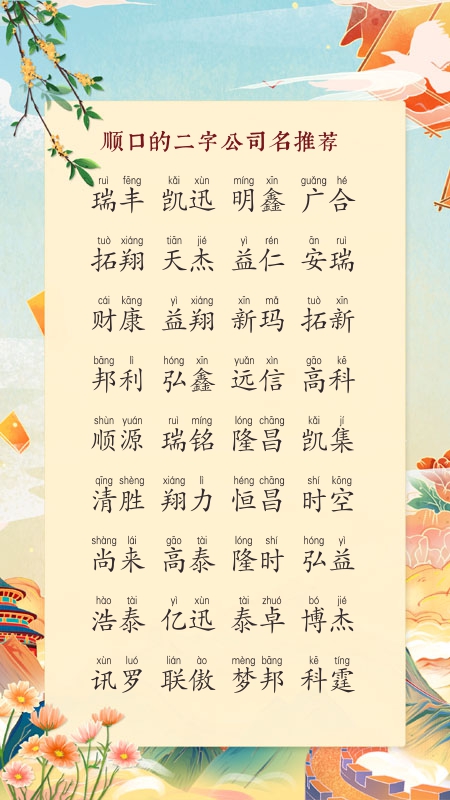 顺口的二字公司名推荐
ruì fēng kǎi xùn míng xīn guǎng hé
瑞丰 凯迅 明鑫 广合
tuò xiáng tiān jié yì rén ān ruì
拓翔 天杰 益仁 安瑞
cái kāng yì xiáng xīn mǎ tuò xīn
财康 益翔 新玛 拓新
bāng lì hóng xīn yuǎn xìn gāo kē
邦利 弘鑫 远信 高科
shùn yuán ruì míng lóng chāng kǎi jí
顺源 瑞铭 隆昌 凯集
qīng shèng xiáng lì héng chāng shí kōng
清胜 翔力 恒昌 时空
shàng lái gāo tài lóng shí hóng yì
尚来 高泰 隆时 弘益
hào tài yì xùn tài zhuó bó jié
浩泰 亿迅 泰卓 博杰
xùn luó lián ào mèng bāng kē tíng
讯罗 联傲 梦邦 科霆